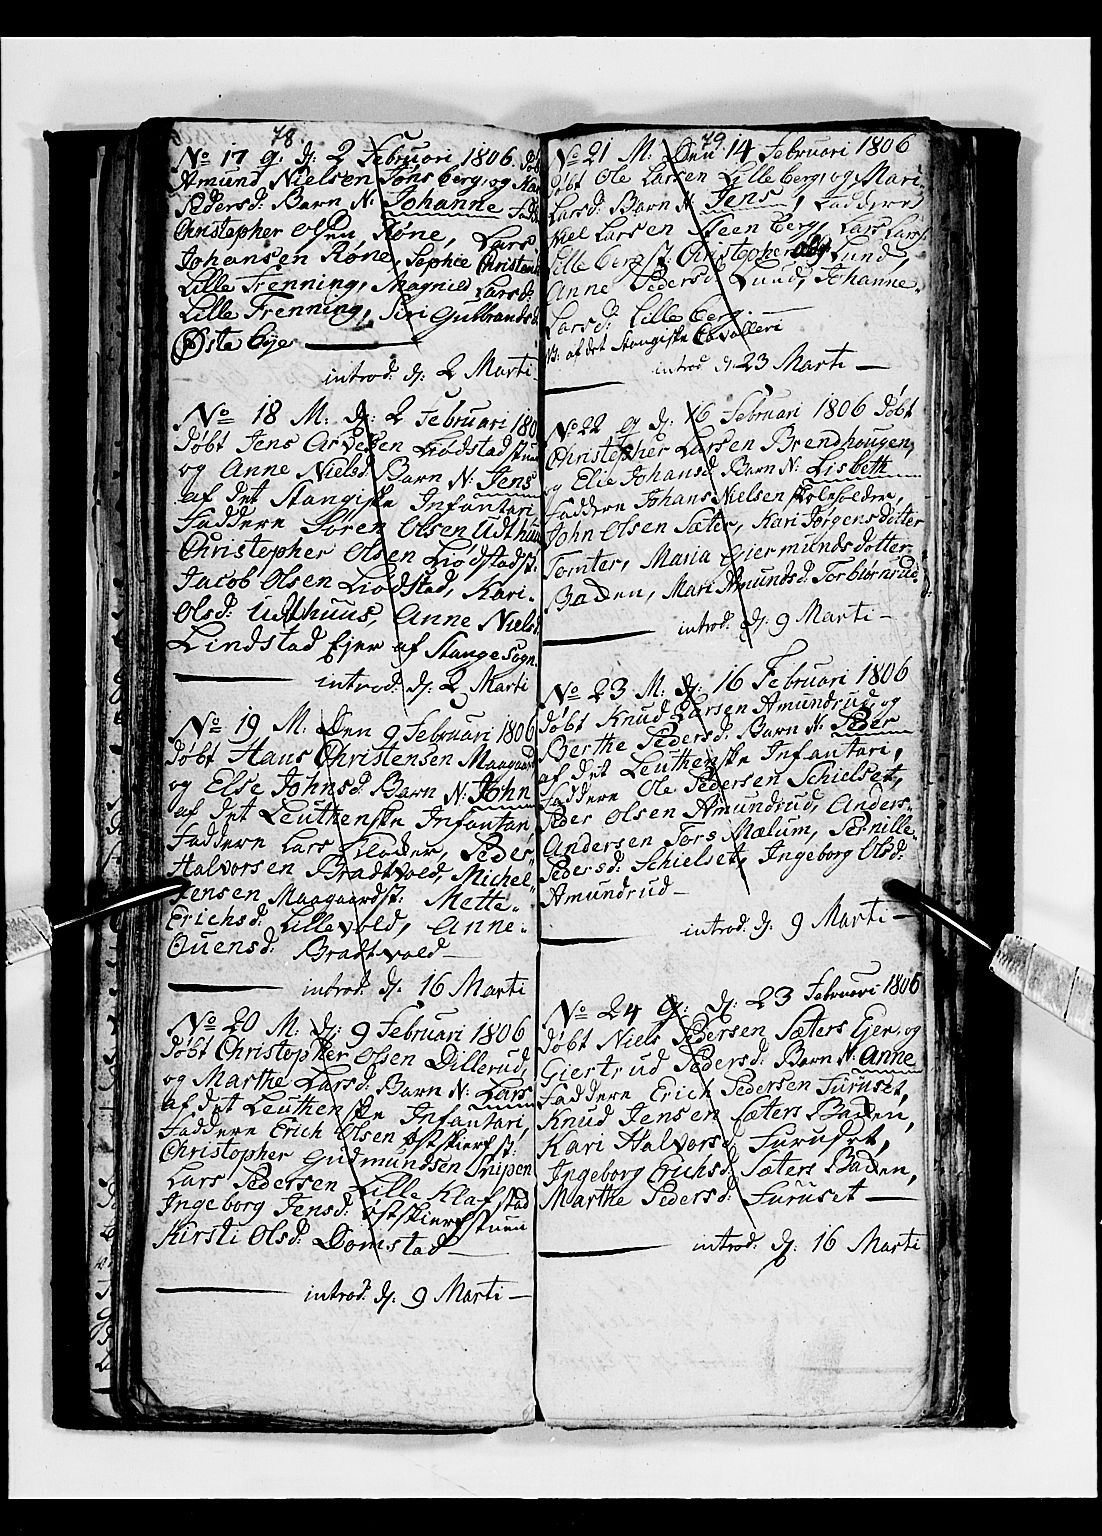 78
No 17 q. d: 2 Februari 1806. døb
Amund Nielsen Tønsberg, og Mar
Pedersd: Barn N: Johanne Fadd
Christopher Olsen Røne, Lars
Johansen Røne, Sophie Christans
Lille Frenning, Magnild Larsd:
Lille Frenning, Siri Gulbrandsd
Østebye
introd: d: 2 Marti
No 18 M: d: 2 Februari 180
døbt Jens Arvesen Liødstadstue
og Anne Nielsd Barn N: Jens
af det Stangiske Infantari
Faddere Søren Olsen Udthuu
Christopher Olsen Liødstadst:
Jacob Olsen Liødstad, Kari
Olsd: Udthuus, Anne Nielsd
Lindstad Ejer af Stange Sogn.
introd: d: 2 Marti
No 19 M: Den 9 Februari 1806
døbt Hans Christensen Maagaard
og Else Johnsd: Barn N: John
af det Leuthenske Infantari
Faddere Lars Kloden, Peder
Halvorsen Bradtvold, Michel
Jensen Maagaardst: Mette
Erichsd: Lillevold, Anne
Ouensd: Bradtvold
introd: d: 16 Marti
No 20 M: d: 9 Februari 1806
døbt Christopher Olsen Dillerud,
og Marthe Larsd: Barn N: Lars
af det Leuthenske Infantari,
Faddere Erich Olsen Østskierst:
Christopher Gudmundsen Snipen
Lars Pedersen Lille Klafstad
Ingeborg Jensd: Østskierstuen
Kirsti Olsd: Domstad
introd: d: 9 Marti
79
No 21 M: Den 14 Februari 1806
døbt Ole Larsen Lilleberg, og Mari
Larsd: Barn N: Jens, Faddere
Niel Larsen Steenberg, Lars Lars
Lilleberg st: Christopher Lund,
Anne Pedersd: Lund, Johanne
Larsd: Lilleberg.
af det Stangiske Cavalleri
introd d: 23 Marti
No 22 q d: 16 Februari 1806 døbt
Christopher Larsen Brendhougen,
og Elie Johansd: Barn N: Lisbeth
Faddere Johans Nielsen skoleholder,
John Olsen Sæter, Kari Jørgensdotter
Tomter, Maria Giermundsdotter
Baden, Mari Amundsd: Torbiørnrud
introd: d: 9 Marti
No 23 M: d: 16 Februari 1806
døbt Knud Larsen Amundrud, og
Berthe Pedersd: Barn N: Peder
af det Leuthenske Infantari,
Faddere Ole Pedersen Schielset,
Peder Olsen Amundrud, Anders
Andersen Tors Mælum, Pernille
Pedersd: Schielset, Ingeborg Olsd:
Amundrud
introd: d: 9 Marti
No 24 q: d: 23 Februari 1806
døbt Niels Pedersen Sæters Ejer, og
Giertrud Pedersd: Barn N: Anne
Faddere Erich Pedersen Furuset,
Knud Jensen Sæters Baden,
Kari Halvorsd: Furuset,
Ingeborg Erichsd: Sæters Baden,
Marthe Pedersd: Furuset
introd: d: 16 Marti